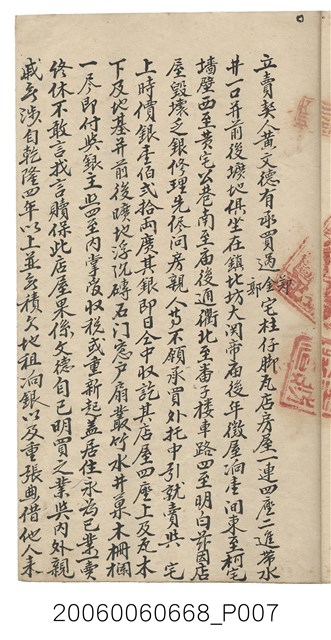 立賣契人黃文德有承買過郭宅柱仔脚瓦店房屋一連四座二進帶水
井一口并前後壙地俱坐在鎮北坊大関帝庙後年徵屋餉壹間東至柯宅
墻壁西至黃宅公巷南至庙後通衢北至番子樓車路四至明白茲因店
屋毀壞乏銀修理先侭问房親人等不領承買外托中引就賣與 宅
上時價銀壹佰弍拾両廣其銀即日仝中收訖其店屋四座上及瓦木
下及地基并前後曠地浮沉磚石门窓户扇叢竹水井菓木柵欄
一尽即付與銀主照四至內掌管收税或重新起盖居住永為己業一賣
終休不敢言找言贖保此店屋果係文德自己明買之業與内外親
戚無涉自乾隆四年以上並無積欠地租响銀以及重張典借他人來
20060060668_P007